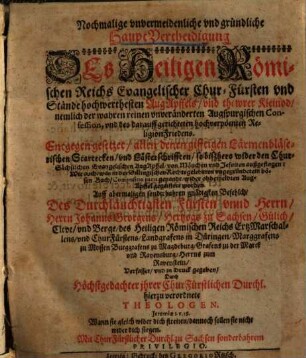 Nochmalige vnvermeidenliche vnd gründliche
Haupt Vertheidigung
Des Heiligen Römi-
schen Reichs Evangelischer Chur-Fürsten vnd
Stände hochwerthesten AugApffels/ vnd thewrer Kleinod/
nemlich der wahren reinen vnveränderten Augspurgischen Con-
fession/ vnd des darauff gerichteten hochverpönten Re-
ligionFriedens.
Entgegen gesetzet/ allen denen gifftigen Lärmenbläse-
rischen
Auff abermaligen sonderbahren gnädigsten Befehlch/
Des Durchläuchtigsten Fürsten/ vnnd Herrn/
Herrn Johanns Georgens/ Hertzogs zu Sachsen/ Gülich/
Cleve/ vnd Berge/ des Heiligen Römischen Reichs ErtzMarschal-
len/ vnd ChurFürsten/ Landgrafens in Düringen/ Marggrafens
zu Meyssen/ Burggrafens zu Magdeburg/ Grafens zu der Marck
vnd Ravenspurg/ Herrns zum
Ravenstein/
Verfasset/ vnd in Druck gegeben/
Durch
Höchstgedachter ihrer ChurFürstlichen Durchl.
hierzu verordnete
THEOLOGEN.
Wann sie gleich wider dich streiten/ dannoch sollen sie nicht
wider dich siegen.
Mit ChurFürstlicher Durchl. zu Sachsen sonderbahrem
PRIVILEGIO.